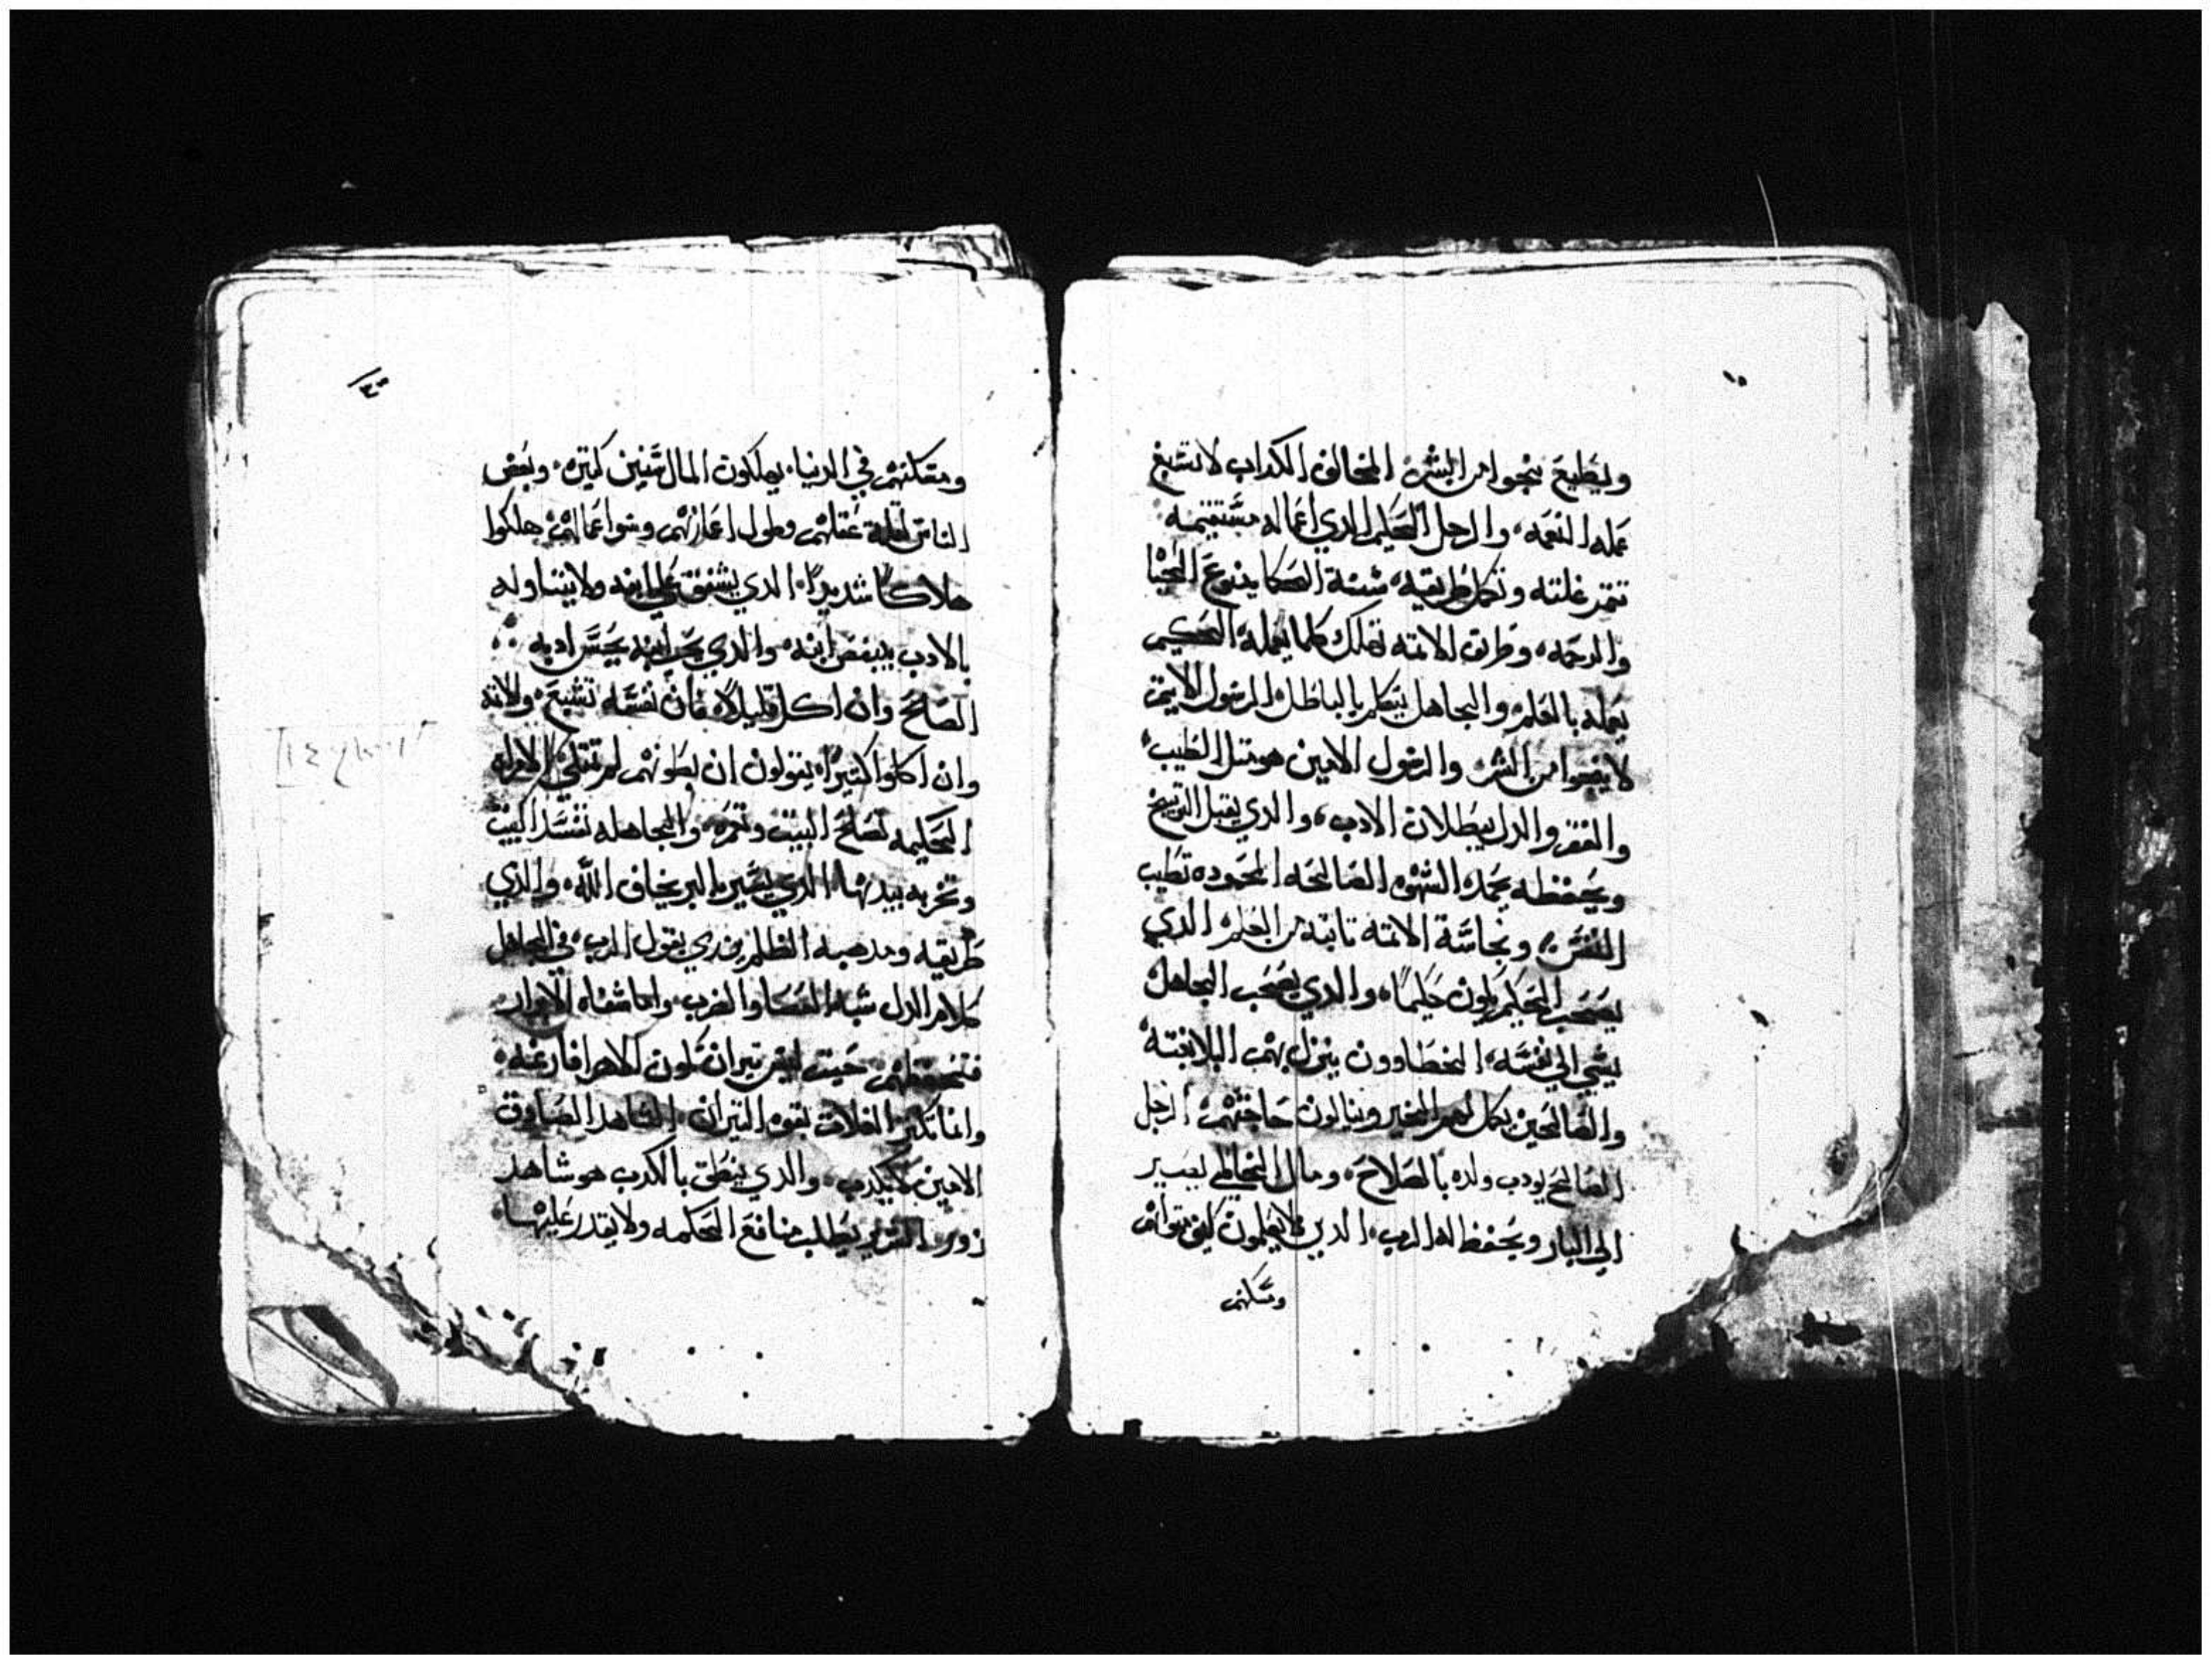 ويطيع ينجوا من الشر، المخالف الكداب لا تشبع
عمله النعمه، والرجل الحليم الدي اعماله مستقيمه
تتمر غلته وتكمل طريقه، سنة الحكما ينبوع الحيا
والرحمه، وطرق الاتمه تهلك كلما يعمله الحكيم
يعمله بالعلم، والجاهل يتكلم بالباطل، الرسول الاتيم
لا ينجوا من الشر، والرسول الامين هو متل الطيب،
والفقر والدل يبطلان الادب، والدي يقبل التوبيخ
ويحفظه يحمد، الشهوه الصالحه المحموده تطيب
النفس، ونجاسة الاتمه تابته من العلم، الدي
يصحب الحكيم يكون حكيما، والدي يصحب الجاهل
يسي الي نفسه، الخطاوون ينزل بهم البلا بغته
والصالحين يكمل لهم الخير وينالون حاجتهم، الرجل
الصالح يودب ولده بالصلاح، ومال الخاطي يصير
الي البار ويحفظ له الرب، الدين لا يعلمون كيف تقوام
ومسكنهم
ومسكنهم في الدنيا، يملكون المال سنين كتيره، وبعض
الناس لقلة عقلهم وطول اعمارهم وسوا اعمالهم، هلكوا
هلاكا شديدا، الدي يشفق علي ابنه ولا يتناوله
بالادب يبغض ابنه، والدي يحب ابنه يحسن ادبه
الصالح وان اكل قليلا، فان نفسه تشبع، والاتمه
وان اكلوا كتيرا، يقولون ان بطونهم لم تمتلي، الامراه
الحكيمه تصلح البيت وتعمره، والجاهله تفسد البيت
وتخربه بيدها، الدي يسير بالبر يخاف الله، والدي
طريقه ومدهبه الظلم يزدي بقول الرب، في الجاهل
كلام الدل شبه العصا والضرب، واما شفاه الابرار
فتحفظهم، حيت ليس تيران تكون الاهرا فارغه،
وانما تكتر الغلات بقوه التيران، الشاهد الصادق
الامين لا يكدب، والدي ينطق بالكدب هو شاهد
زور، الشرير يطلب منافع الحكمه ولا يقدر عليها،